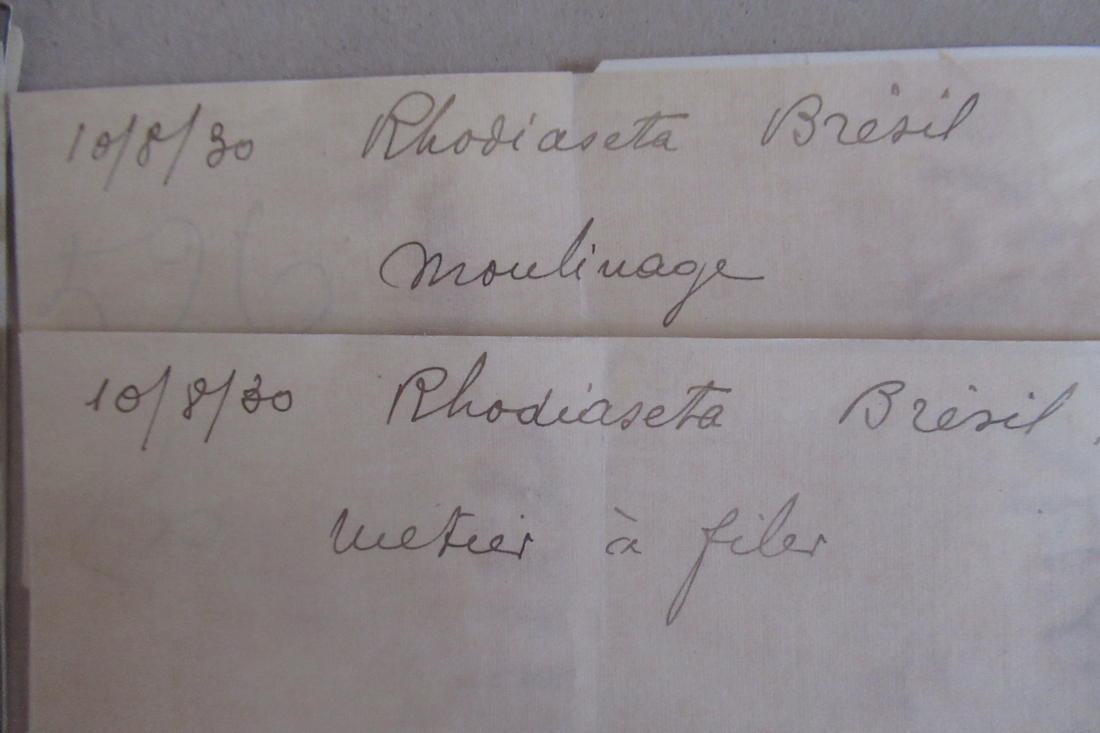 10/8/30 Rhodiaseta Brésil
Moulinage
526
10/8/30 Rhodiaseta Brésil.
Metier à filer